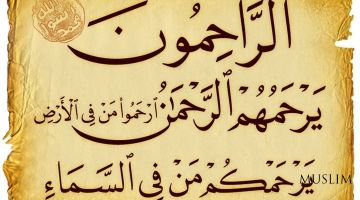 الرَّاحِمُونَ
يَرْحَمُهُمُ ٱلرَّحْمَٰنُ ارْحَمُوا۟ مَنْ فِي ٱلْأَرْضِ
يَرْحَمْكُمْ مَنْ فِي ٱلسَّمَاءِ
MUSLIM